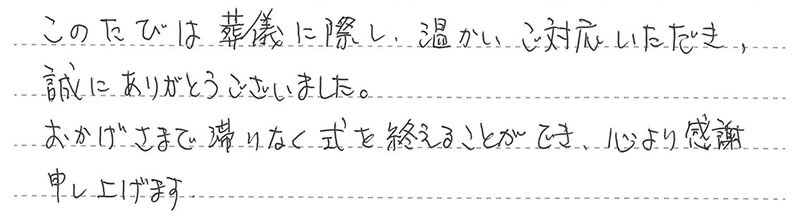 このたびは葬儀に際し、温かいご対応いただき、
誠にありがとうございました。
おかげさまで滞りなく式を終えることができ、心より感謝
申し上げます.